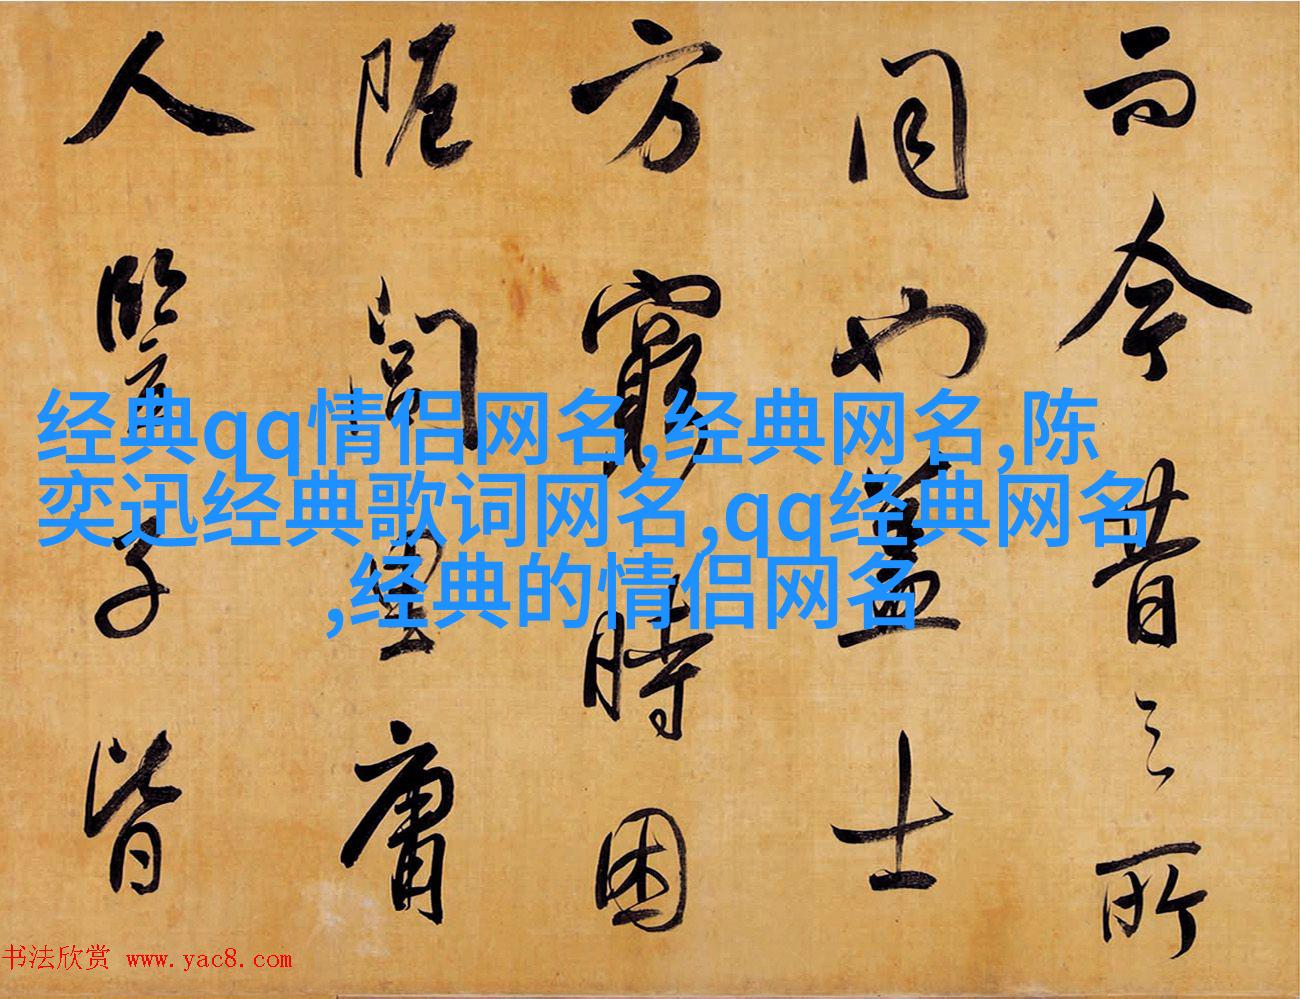 而今昔之所
同也蓋士
方窮時困
阨閭里庸
人豎子皆
经典qq情侣网名,经典网名,陈
奕迅经典歌词网名,qq经典网名
,经典的情侣网名
书法欣赏 www.yac8.com